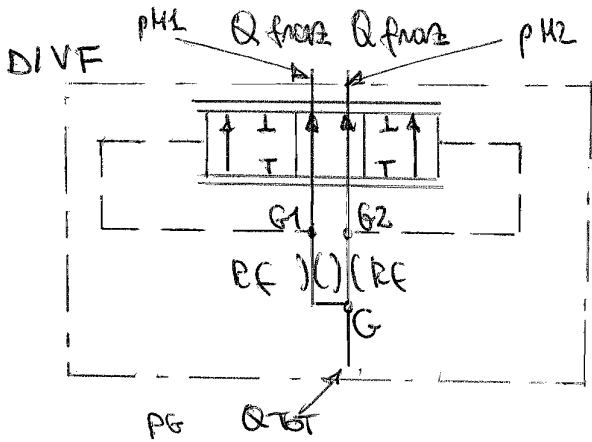 pM1 Q fraz Q fraz pM2
DIVF
G1 G2
RF RF
G
pG QTOT